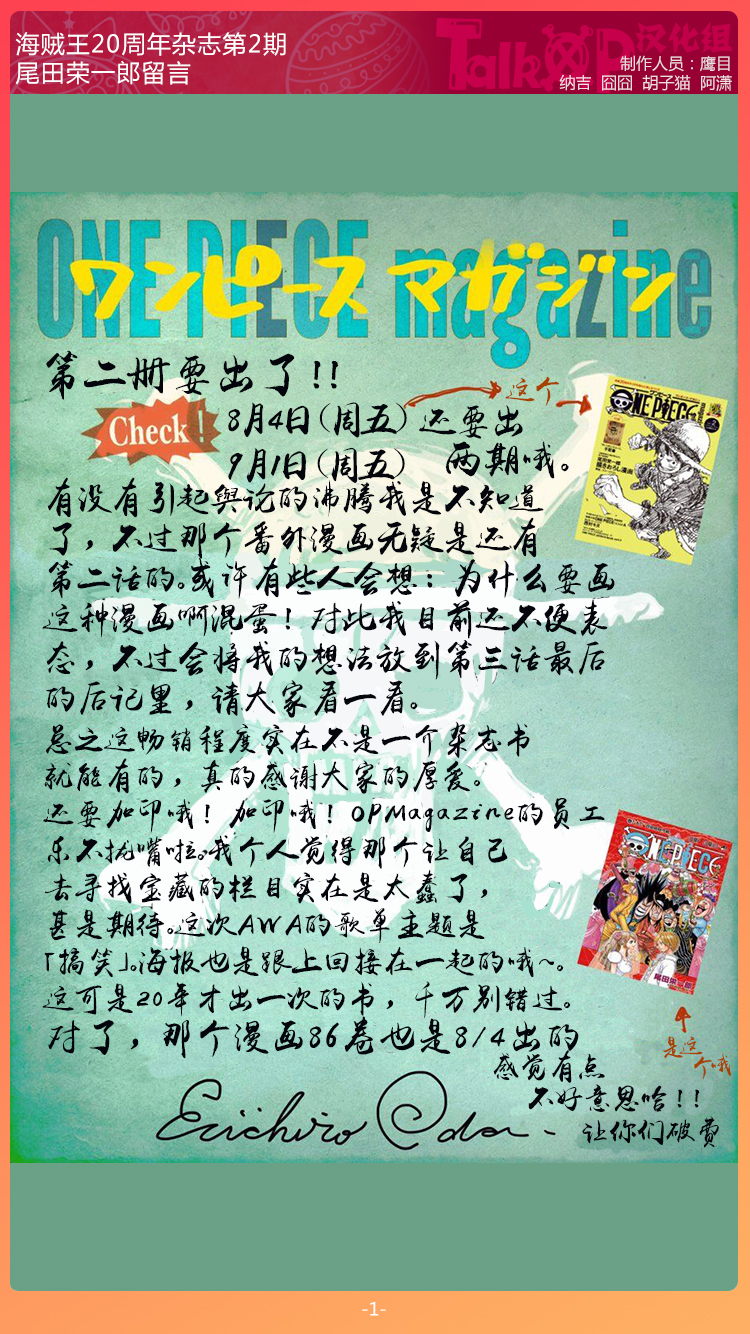 海贼王20周年杂志第2期
尾田荣一郎留言
TalkOP汉化组
制作人员：鹰目
纳吉 囧囧 胡子猫 阿潇
ONE PIECE magazine
ワンピース マガジン
第二册要出了!!
Check!
8月4日(周五)还要出
这个
9月1日(周五) 两期哦。
ONE PIECE
有没有引起舆论的沸腾我是不知道
了，不过那个番外漫画无疑是还有
第二话的。或许有些人会想：为什么要画
这种漫画啊混蛋！对此我目前还不便表
态，不过会将我的想法放到第三话最后
的后记里，请大家看一看。
总之这畅销程度实在不是一介杂志书
就能有的，真的感谢大家的厚爱。
还要加印哦！加印哦！OPMagazine的员工
乐不拢嘴啦。我个人觉得那个让自己
去寻找宝藏的栏目实在是太蠢了，
甚是期待。这次AWA的歌单主题是
「搞笑」。海报也是跟上回接在一起的哦~。
这可是20年才出一次的书，千万别错过。
对了，那个漫画86卷也是8/4出的
ONE PIECE
尾田栄一郎
是这
个哦
感觉有点
不好意思哈!!
让你们破费
Eiichiro Oda
-1-